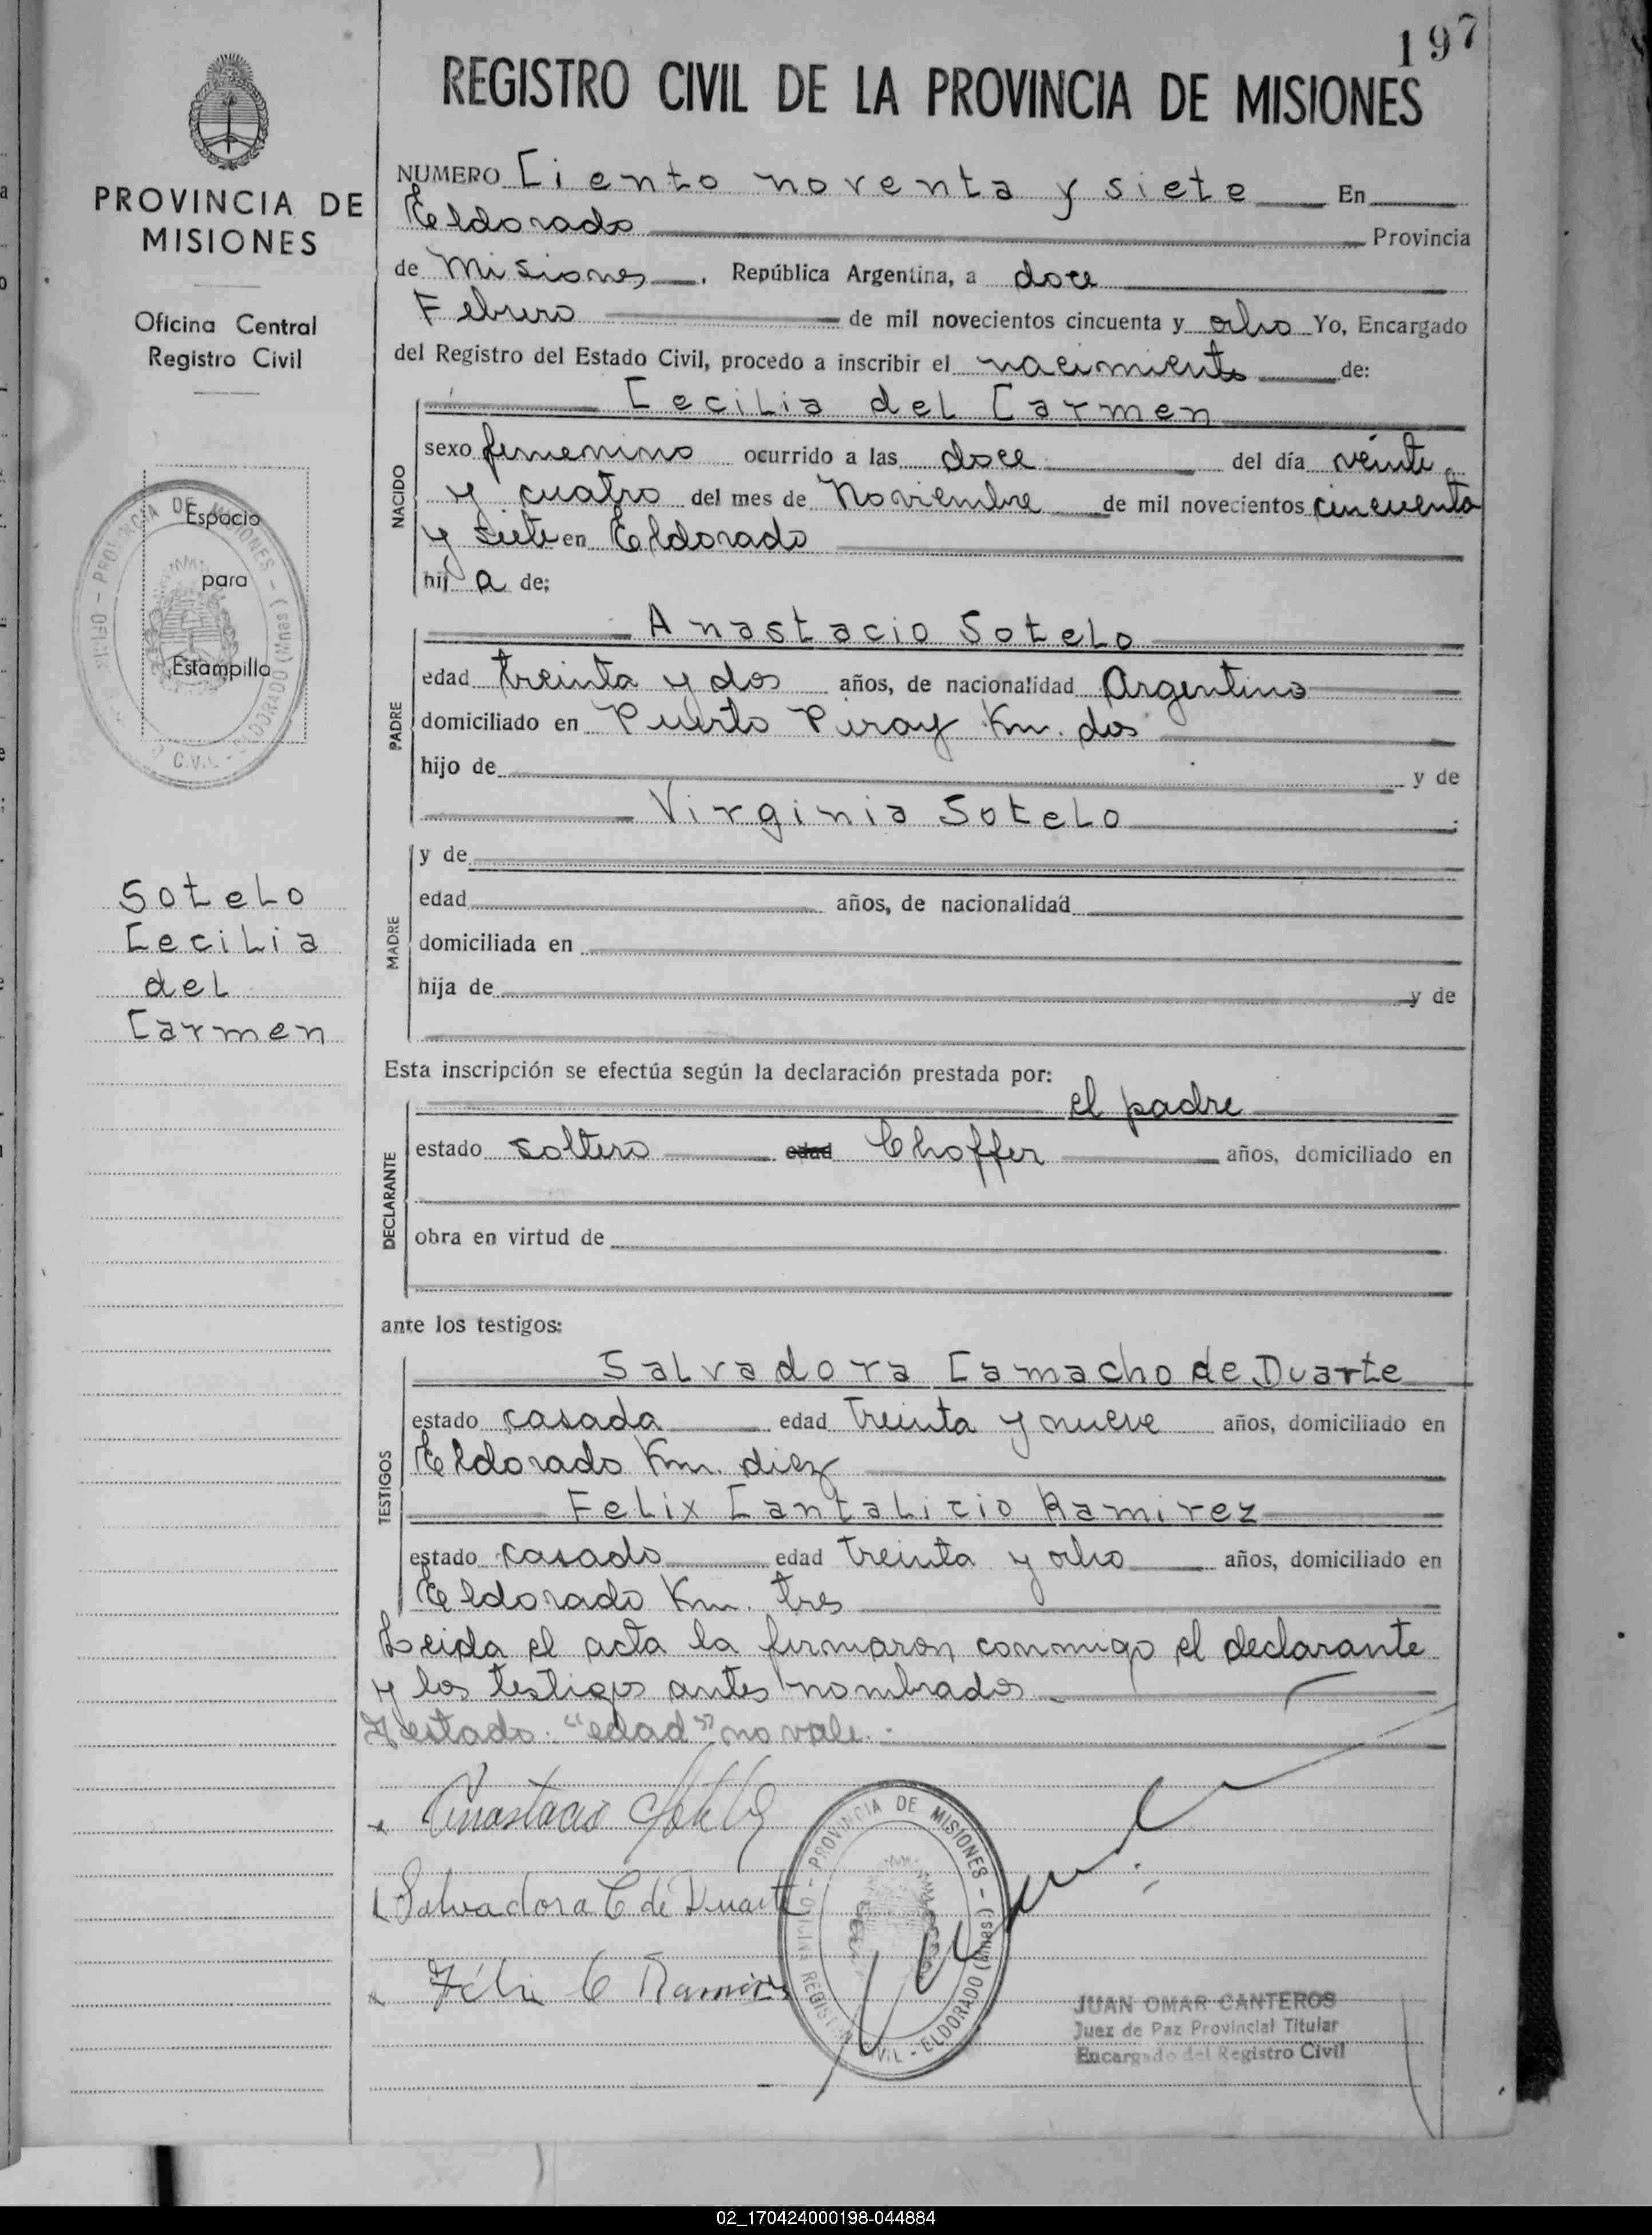 197
REGISTRO CIVIL DE LA PROVINCIA DE MISIONES
PROVINCIA DE
MISIONES
Oficina Central
Registro Civil
Espacio
para
Estampilla
Sotelo
Cecilia
del
Carmen
NUMERO Ciento noventa y siete En
Eldorado Provincia
de Misiones. República Argentina, a doce
Febrero de mil novecientos cincuenta y ocho Yo, Encargado
del Registro del Estado Civil, procedo a inscribir el nacimiento de:
Cecilia del Carmen
NACIDO
sexo femenino ocurrido a las doce del día veinte
y cuatro del mes de Noviembre de mil novecientos cincuenta
y siete en Eldorado
hij a de;
Anastacio Sotelo
PADRE
edad treinta y dos años, de nacionalidad Argentino
domiciliado en Puerto Piray Km. dos
hijo de y de
Virginia Sotelo
MADRE
y de
edad años, de nacionalidad
domiciliada en
hija de y de
Esta inscripción se efectúa según la declaración prestada por:
el padre
DECLARANTE
estado soltero edad Choffer años, domiciliado en
obra en virtud de
ante los testigos:
TESTIGOS
Salvadora Camacho de Duarte
estado casada edad treinta y nueve años, domiciliado en
Eldorado Km. diez
Felix Cantalicio Ramirez
estado casado edad treinta y ocho años, domiciliado en
Eldorado Km. tres
Leida el acta la firmaron conmigo el declarante
y los testigos antes nombrados
Testado: "edad" no vale.
Anastacio Sotelo
Salvadora C de Duarte
Félix C Ramirez
PROVINCIA DE MISIONES - ELDORADO (Mnes)
JUAN OMAR CANTEROS
Juez de Paz Provincial Titular
Encargado del Registro Civil
02_170424000198-044884